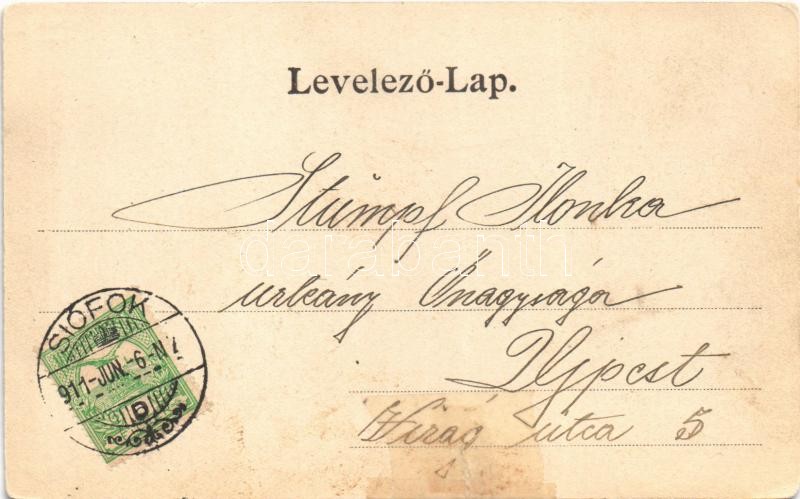 Levelező-Lap.
Stumpf Ilonka
urleány Őnagysága
Ujpest
Virág utca 5
SIÓFOK
911-JUN.-6-N7
darabanth